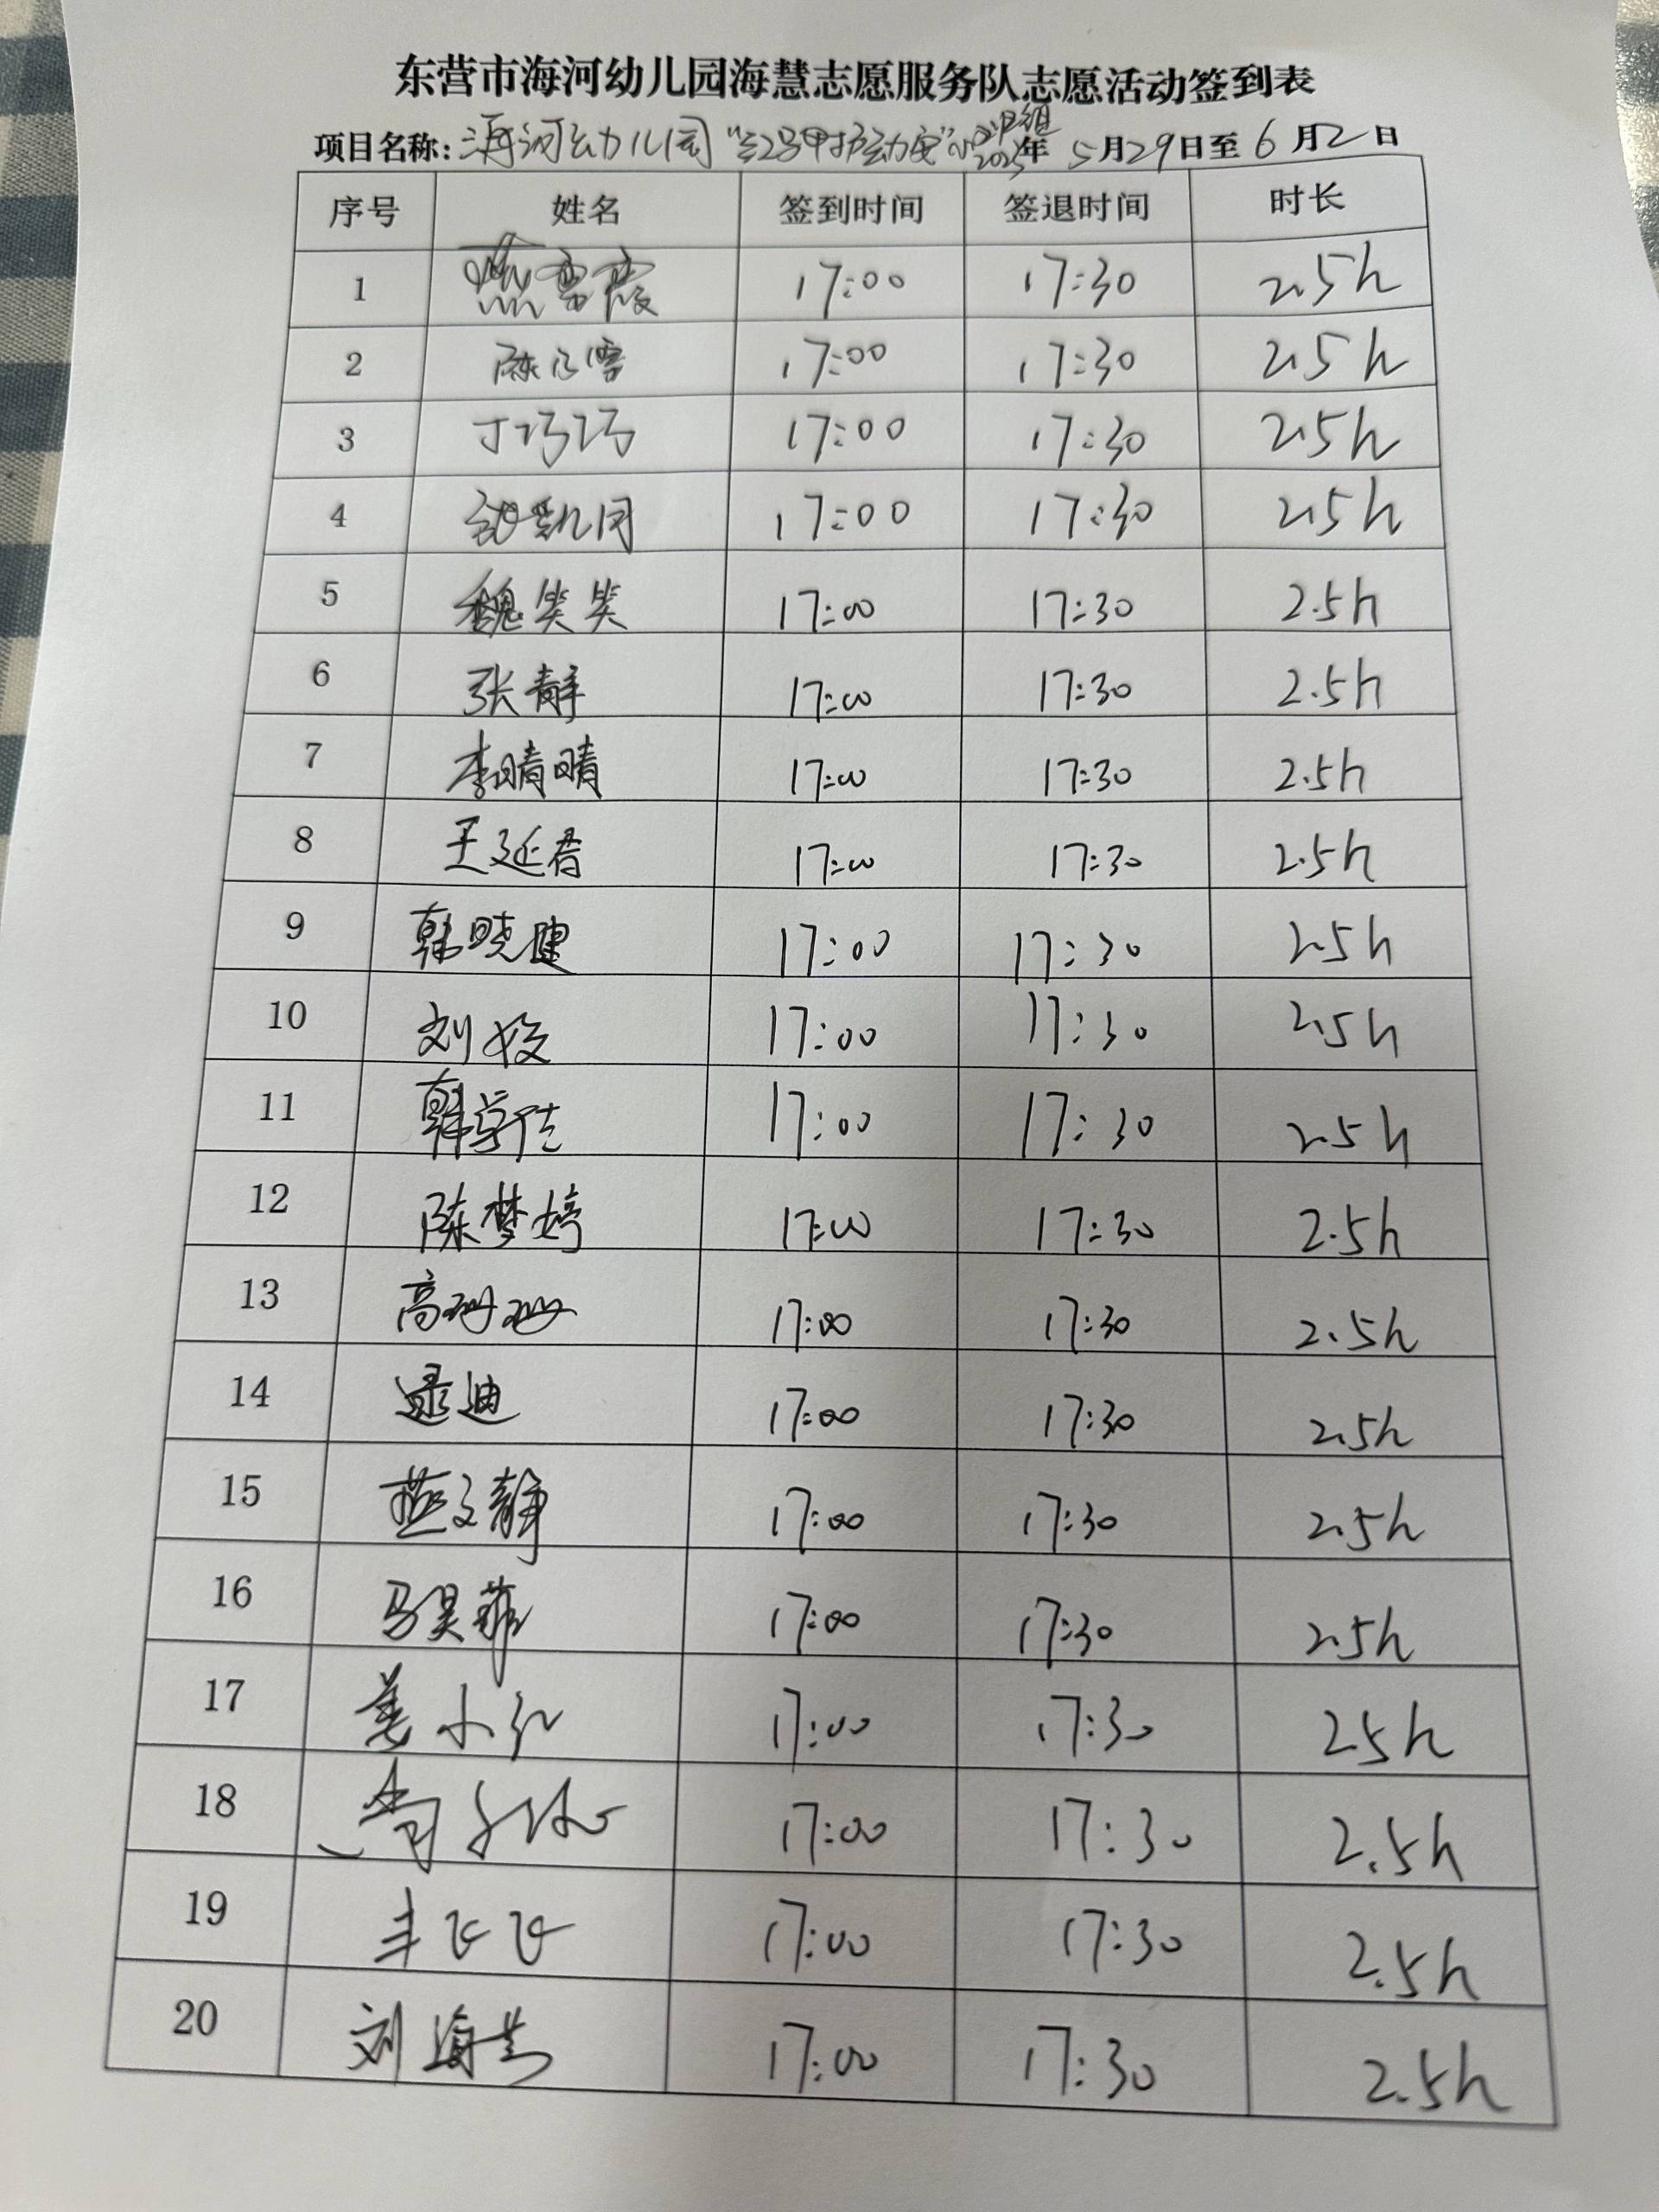 东营市海河幼儿园海慧志愿服务队志愿活动签到表
项目名称: 海河幼儿园 2025年 5月29日至6月2日
序号 姓名 签到时间 签退时间 时长
1 17:00 17:30 2.5h
2 陈 雪 17:00 17:30 2.5h
3 丁巧巧 17:00 17:30 2.5h
4 凯月 17:00 17:30 2.5h
5 魏笑笑 17:00 17:30 2.5h
6 张静 17:00 17:30 2.5h
7 李晴晴 17:00 17:30 2.5h
8 王延君 17:00 17:30 2.5h
9 韩晓健 17:00 17:30 2.5h
10 刘姣 17:00 17:30 2.5h
11 韩学佳 17:00 17:30 2.5h
12 陈梦婷 17:00 17:30 2.5h
13 高珊珊 17:00 17:30 2.5h
14 逯迪 17:00 17:30 2.5h
15 燕文静 17:00 17:30 2.5h
16 马昊菲 17:00 17:30 2.5h
17 姜小红 17:00 17:30 2.5h
18 17:00 17:30 2.5h
19 丰飞飞 17:00 17:30 2.5h
20 刘海兰 17:00 17:30 2.5h